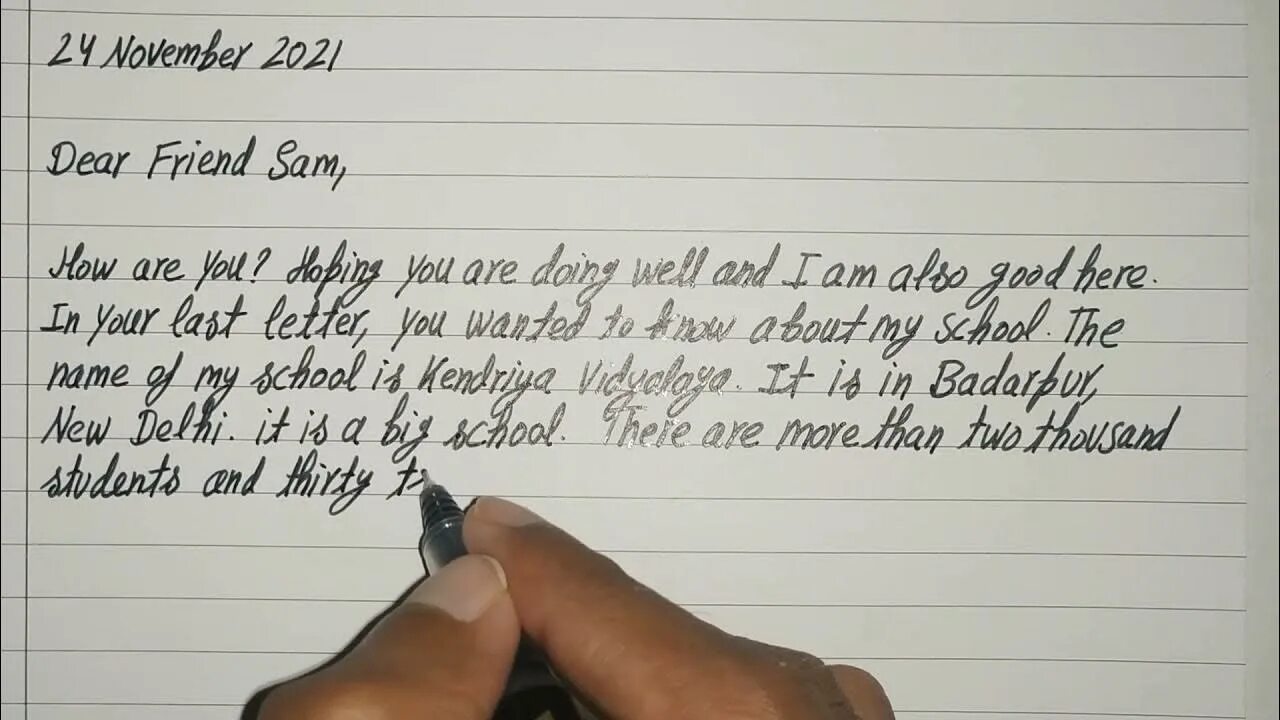 24 November 2021
Dear Friend Sam,
How are you? Hoping you are doing well and I am also good here.
In your last letter, you wanted to know about my school. The
name of my school is Kendriya Vidyalaya. It is in Badarpur,
New Delhi. it is a big school. There are more than two thousand
students and thirty